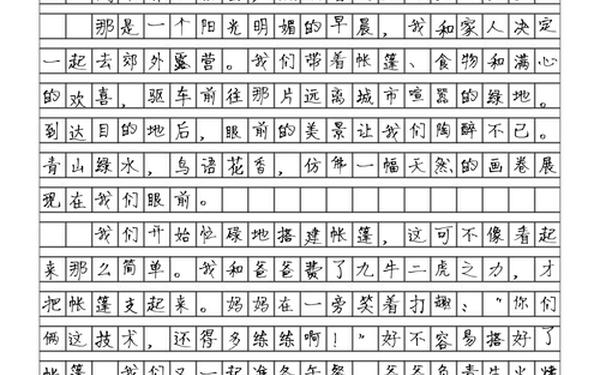 那是一个阳光明媚的早晨，我和家人决定
一起去郊外露营。我们带着帐篷、食物和满心
的欢喜，驱车前往那片远离城市喧嚣的绿地。
到达目的地后，眼前的美景让我们陶醉不已。
青山绿水，鸟语花香，仿佛一幅天然的画卷展
现在我们眼前。
我们开始忙碌地搭建帐篷，这可不像看起
来那么简单。我和爸爸费了九牛二虎之力，才
把帐篷支起来。妈妈在一旁笑着打趣："你们
俩这技术，还得多练练啊！"好不容易搭好了
帐篷，我们又一起准备午餐。爸爸负责生火烤